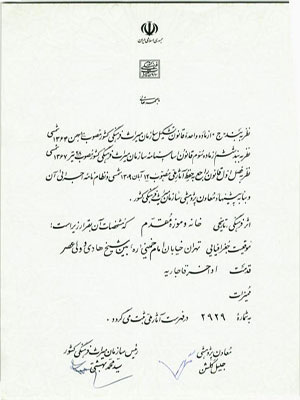 جمهوری اسلامی ایران
بسمه تعالی
نظر به بند ج ۱۰ از ماده واحدهٔ قانون تشکیل سازمان میراث فرهنگی کشور مصوب بهمن ۱۳۶۴ شمسی
نظر به بند ششم از ماده سوم قانون اساسنامه سازمان میراث فرهنگی کشور مصوب تیر ۱۳۶۷ شمسی
نظر به فصل اول قانون راجع به حفظ آثار ملی مصوب ۱۲ آبان ۱۳۰۹ شمسی و نظام نامه اجرائی آن
و بنا به پیشنهاد معاون پژوهشی سازمان میراث فرهنگی کشور .
اثر فرهنگی تاریخی خانه و موزه مقدم که مشخصات آن بقرار زیر است :
موقعیت جغرافیایی تهران خیابان امام خمینی (ره) بین شیخ هادی و ولی عصر
قدمت اواخر قاجاریه
ممیزات
به شمارهٔ ۲۹۲۹ در فهرست آثار ملی ثبت می گردد .
معاون پژوهشی رئیس سازمان میراث فرهنگی کشور
جلیل گلشن سید محمد بهشتی